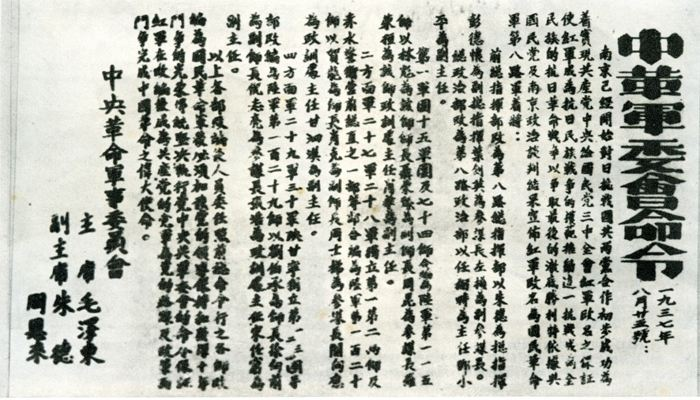 中革軍委會命令
一九三七年
八月廿五號：
南京已經開始對日抗戰國共兩黨合作初步成功為
着實現共產黨中央給國民黨三中全會紅軍改名之保証
使紅軍成為抗日民族戰爭的模範推動這一抗戰成為全
民族的抗日革命戰爭以爭取最後的澈底勝利特依據與
國民党及南京政治談判結果宣佈紅軍改名為國民革命
軍第八路軍着將：
前總指揮部改為第八路總指揮部以朱德為總指揮
彭德懷為副總指揮葉劍英為參謀長左權為副參謀長。
總政治部改為第八路政治部以任弼時為主任鄧小
平為副主任。
第一軍團十五軍團及七十四師合編為陸軍第一一五
師以林彪為該師師長聶榮臻為副師長周昆為參謀長羅
榮桓為該師政訓處主任蕭華為副主任。
二方面軍二十七軍二十八軍獨立第一第二兩師及
赤水警衛營前總直之一部等部合編為陸軍第一百二十
師以賀龍為師長蕭克為副師長周士梯為參謀長關向應
為政訓處主任甘泗淇為副主任。
四方面軍二十九軍三十軍陝甘寧獨立第一二三四等
部改編為陸軍第一百二十九師以劉伯承為師長徐向前
為副師長倪志亮為參謀長張浩為政訓處主任宋任窮為
副主任。
以上各部改編後人員委任照前總命令行之各部改
編為國民革命軍後必須加強党的領導保持和發揚十年
鬥爭的光榮傳統堅決執行党中央與軍委會的命令保証
紅軍在改編後成為共產党的党軍為党的路線及政策而
鬥爭完成中國革命之偉大使命。
中央革命軍事委員會
主席毛澤東
副主席朱德
周恩來